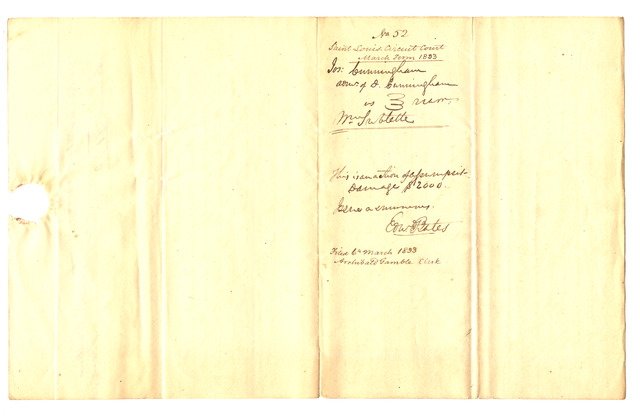 No 52
Saint Louis Circuit Court
March Term 1833
Jos: Cunningham
admr of D. Cunningham
vs narr.
Wm Sublette
This is an action of assumpsit
Damage $2000.
Issue a summons.
Edw Bates
Filed 6th March 1833
Archibald Gamble Clerk